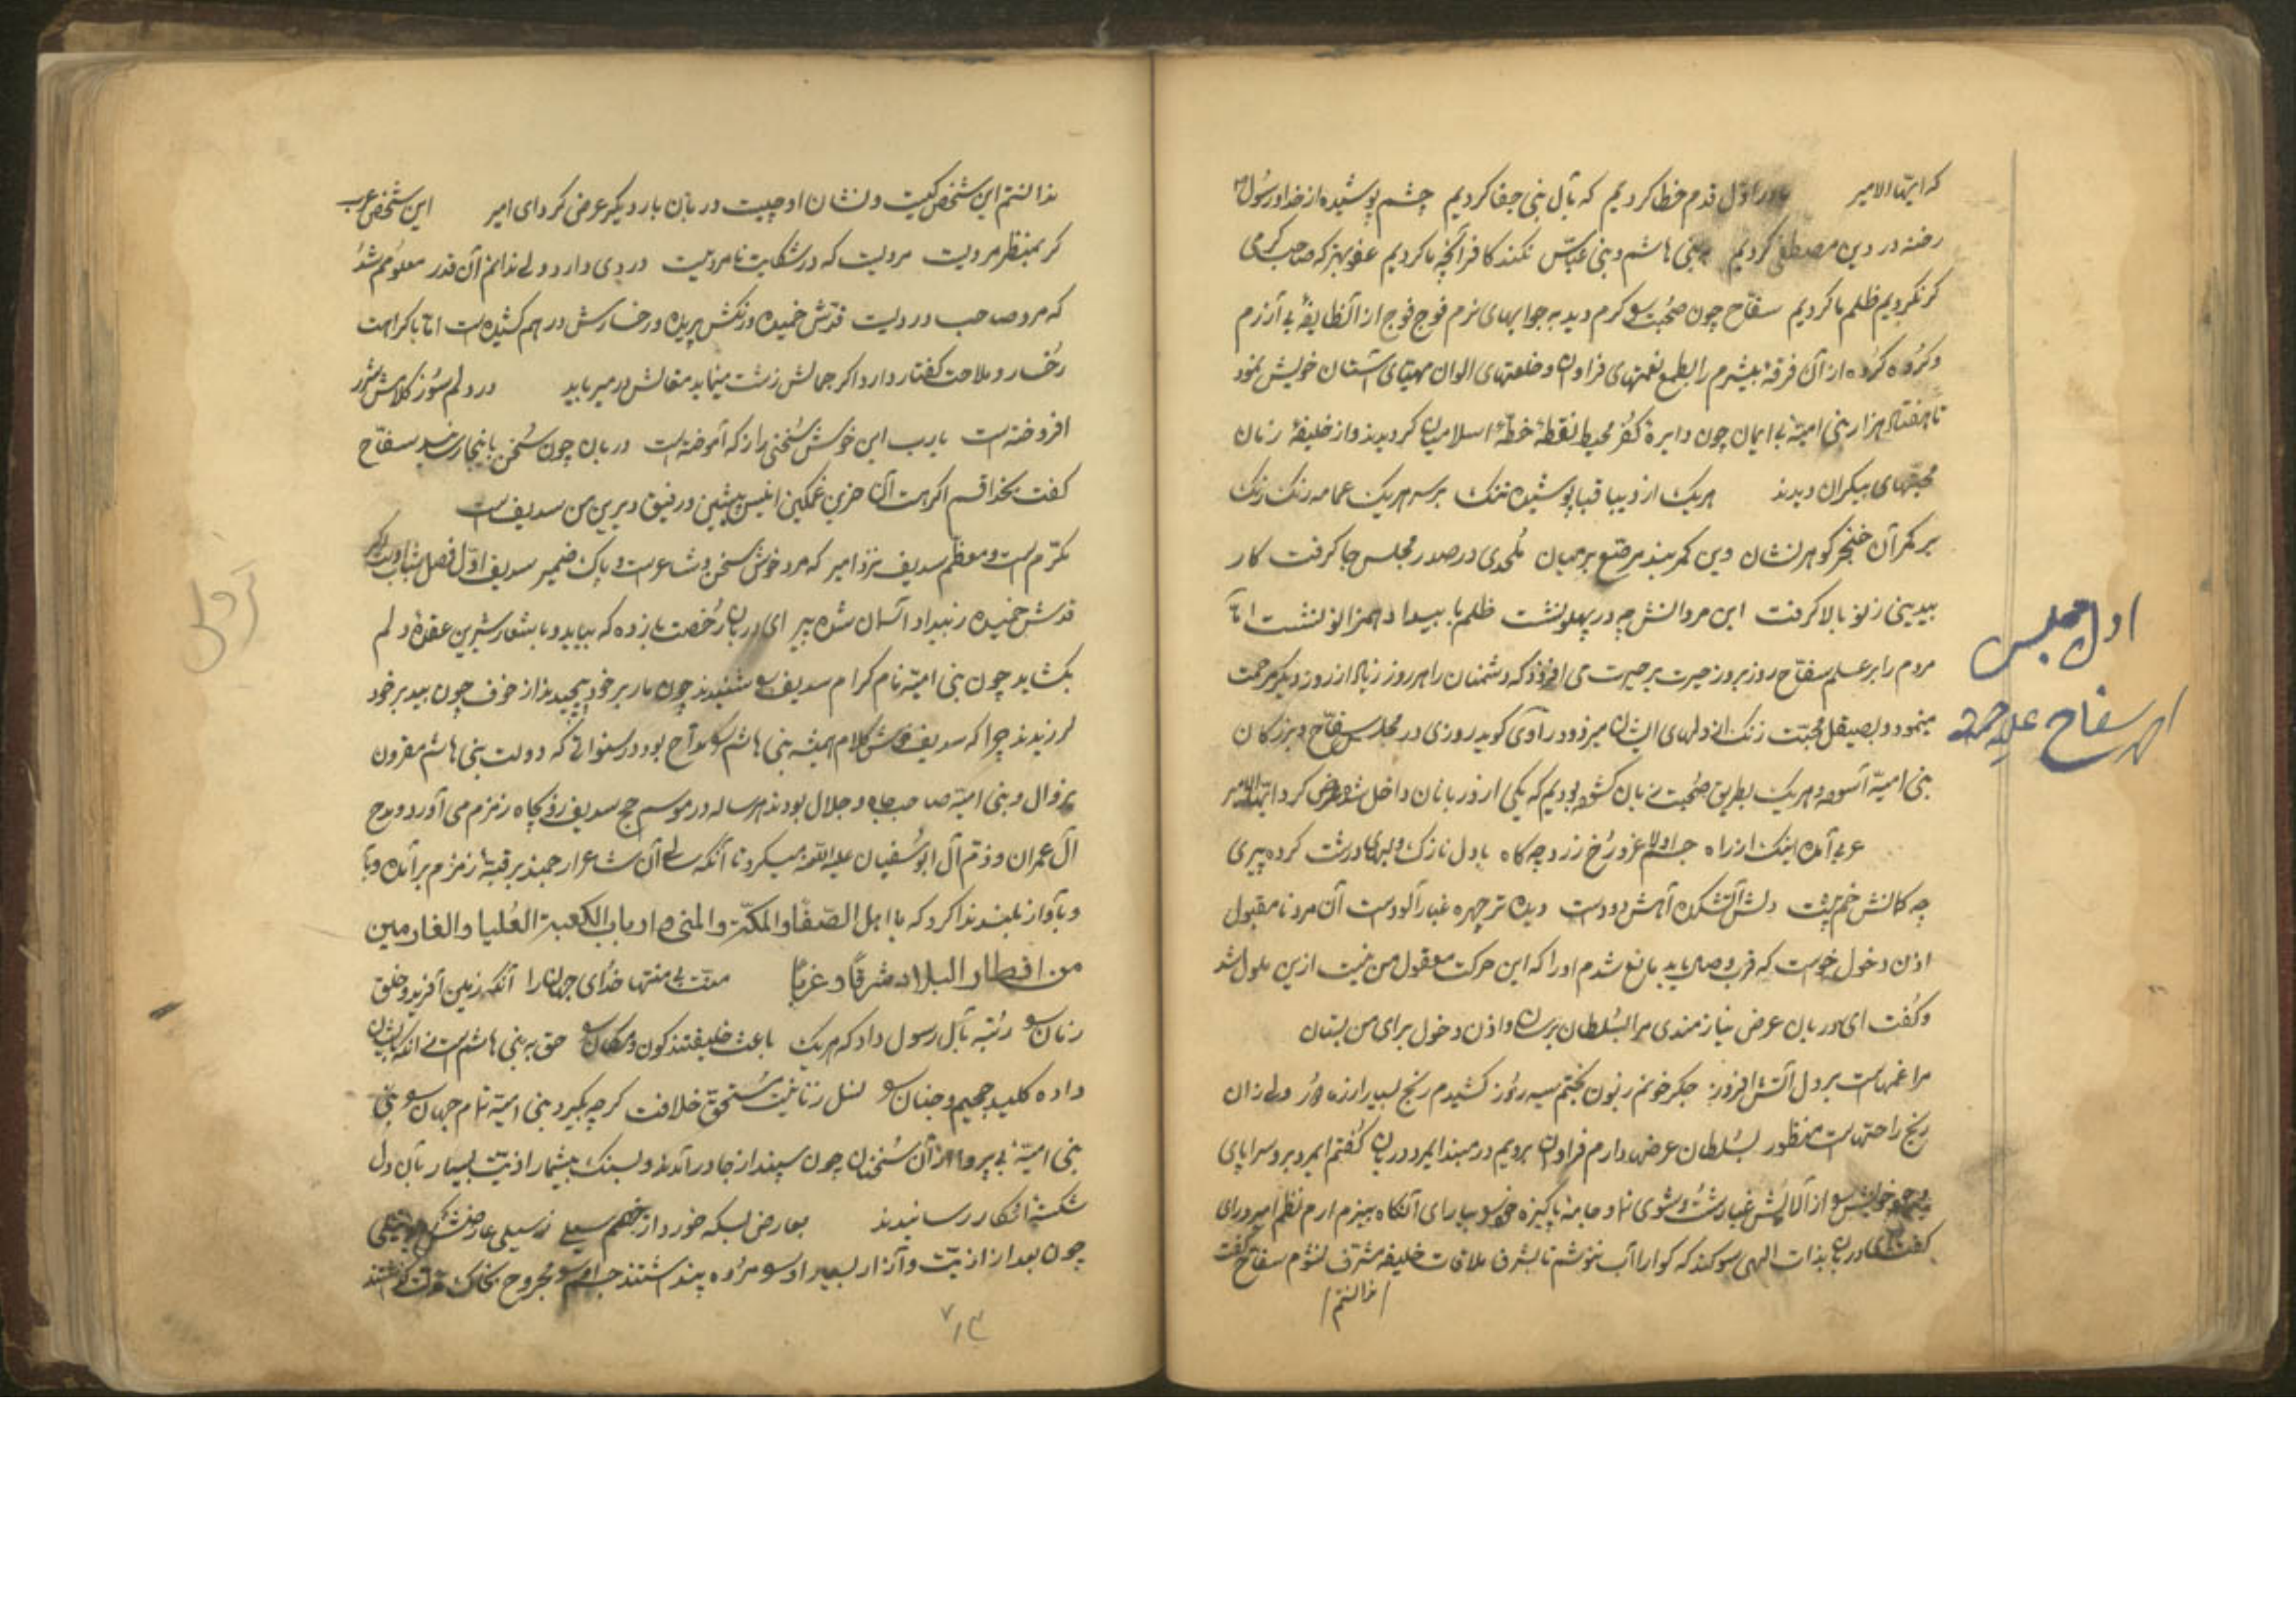 که ایها الامیر ما در اول قدم خطا کردیم که بآل نبی جفا کردیم چشم پوشیده از خدا و رسول
رخنه در دین مصطفی کردیم بنی هاشم و بنی عباس نکند کافر آنچه ما کردیم عفو بهتر که صاحب کرمی
کر نکردیم ظلم ما کردیم سفاح چون صحبت و کرم دید به جوابهای نرم فوج فوج از آنطایفهٔ بی آزرم
و کروه کروه از آن فرقهٔ بیشرم را بطمع نعمتهای فراوان و خلعتهای الوان مهیای آستان خویش نمود
تا هفتاد هزار بنی امیهٔ بی ایمان چون دایرهٔ کفر محیط نقطهٔ خطهٔ اسلامیان کردیدند و از خلیفهٔ زمان
محبتهای بیکران دیدند هریک از دیبا قبا پوشیده تنک بر سر هریک عمامه رنک رنک
بر کمر آن خنجر کوهر نشان وین کمربند مرصع بر میان ملحدی در صدر مجلس جا کرفت کار
بیدینی ز نو بالا کرفت این مروانش چو در پهلو نشت ظلم با بیداد همزانو نشت اما
مردم را بر عمل سفاح روز بروز حیرت بر حیرت می افزود که دشمنان را هر روز زیاد از روز دیکر مرحمت
مینمود و بصیقل محبت زنک از دلهای ایشان میزدود راوی کوید روزی در مجلس سفاح و بزرکان
بنی امیه آسوده هریک بطریق صحبت زبان کشوده بودیم که یکی از دربانان داخل شد و عرض کرد ایها الامیر
عربی آمده اینک از راه جسم لاغر و رخ زرد چه کاه با دل نازک و لبهای درشت کرده پیری
چه کمانش خم پشت دلش آتشکده آهش دودست دیده تر چهره غبار آلودست آن مرد نامقبول
اذن دخول خواست که قرب وصول یابد مانع شدم او را که این حرکت معقول من نیست ازین ملول شد
و کفت ای دربان عرض نیازمندی مرا بسلطان برسان و اذن دخول برای من بستان
مرا غمهاست بر دل آتش افروز جکر خونم زبون بختم سیه روز کشیدم رنج بسیار از زمانه ولی زان
رنج راحتهاست منظور بسلطان عرض دارم فراوان بردیم در مبند ایمرد دربان کفتم ایمرد برو سراپای
وجود خویش از آلایش غبار شست و شوی نما و جامهٔ پاکیزه خود بیارای آنکاه بنرم ارم نظم امیر درای
کفت ای دربان بذات الهی سوکند که کوارا آب ننوشم تا بشرف ملاقات خلیفه مشرف نشوم سفاح کفت
ندانستم
اول مجلس
امیر سفاح علیه رحمه
ندانستم این شخص کیست و نشان او چیست دربان بار دیکر عرض کرد ای امیر این شخص عرب
کر بمنظر مردیت مردیت که در شکایت نامردیت دردی دارد ولی ندانم آن قدر معلومم شد
که مرد صاحب دردیت قدش خمیده و رنکش پریده و رخسارش در هم کشیده است اما با کراهت
رخسار و ملاحت کفتار دارد اکر جمالش زشت مینماید مقالش دل میرباید در دلم سوز کلامش شور
افروخته است یا رب این خوش سخنی را ز که آموخته است دربان چون سخن باینجا رسانید سفاح
کفت بخدا قسم اکر هست آن حزین غمکین انیس پیشین و رفیق دیرین من سدیف است
مکرم است و معظم سدیف نزد امیر که مرد خوش سخن و شاعر است و پاک ضمیر سدیف اول فصل شباب
قدش خمیده ز بیداد آسمان شده پیر ای دربان رخصت بازده که بیاید و با شعار شیرین عقدهٔ دلم
بکشاید چون بنی امیه نام کرام سدیف شنیدند چون مار بر خود پیچیدند از خوف چون بید بر خود
لرزیدند چرا که سدیف خوش کلام همیشه بنی هاشم را مداح بود در سنواتی که دولت بنی هاشم مقرون
بزوال و بنی امیه صاحب جاه و جلال بودند هر ساله در موسم حج سدیف رو بچاه زمزم می آورد و مدح
آل عمران و ذم آل ابوسفیان علیه اللعنه میکرد تا آنکه سالی آن شاعر ارجمند بر قبهٔ زمزم برآمده و با
و بآواز بلند ندا کرد که یا اهل الصفا و المکه و المنی و ارباب الکعبه العلیا و الغارمین
من اقطار البلاد شرقاً و غرباً منت بی منتها خدای جهان را آنکه زمین آفرید و خلق
زمان رتبه بآل رسول داد که هریک باعث خلیفتند کون و مکان حق به بنی هاشم است نی آنکه بایشان
داده کلید جحیم و جنان نسل زنا نیست مستحق خلافت کر چه بکیرد بنی امیه تمام جهان
بنی امیهٔ بی پروا از آن سخنان چون سپند از جا درآمدند و بسنک بیشمار اذیت بسیار بآن دل
شکستهٔ افکار رسانیدند بعارض بسکه خورد از خصم سیلی ز سیلی عارضش نیلی
چون بعد از اذیت و آزار بسیار او را مرده پنداشتند جسم مجروح بخاک کذاشتند